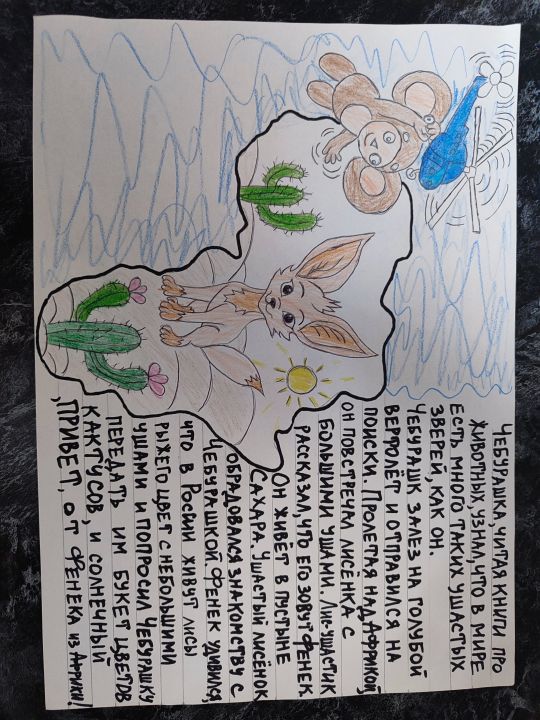 Чебурашка, читая книги про
животных, узнал, что в мире
есть много таких ушастых
зверей, как он.
Чебурашк залез на голубой
вертолёт и отправился на
поиски. Пролетая над Африкой,
он повстречал лисёнка с
большими ушами. Лис-ушастик
рассказал, что его зовут Фенек.
Он живёт в пустыне
Сахара. Ушастый лисёнок
обрадовался знакомству с
Чебурашкой. Фенек удивился,
что в России живут лисы
рыжего цвет с небольшими
ушами и попросил Чебурашку
передать им букет цветов
кактусов, и солнечный
"ПРИВЕТ" от Фенека из Африки!